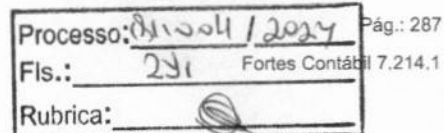 Processo: / 2024 Pág.: 287
Fls.: 291 Fortes Contábil 7.214.1
Rubrica: